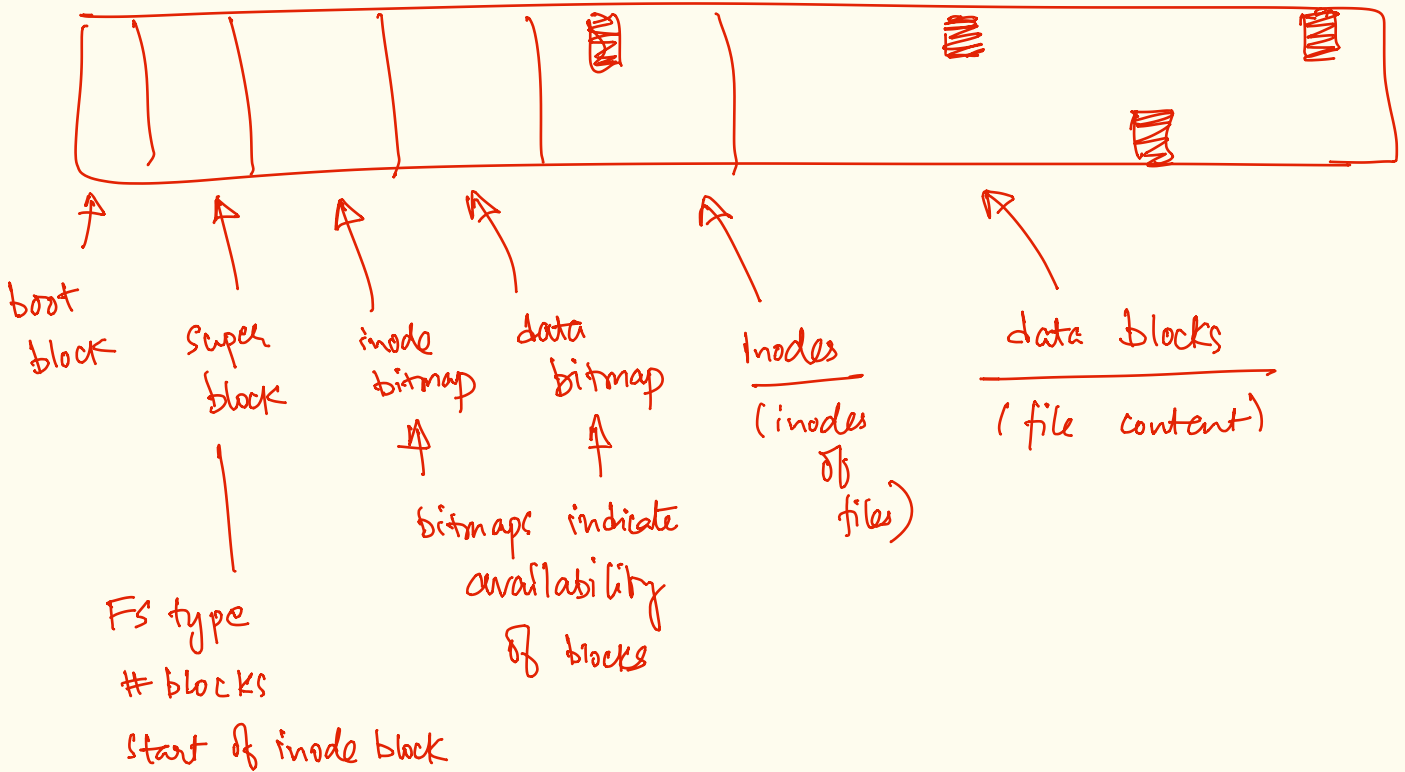 boot
block
super
block
inode
bitmap
data
bitmap
Inodes
(inodes
of
files)
data blocks
(file content)
bitmaps indicate
availability
of blocks
FS type
# blocks
start of inode block